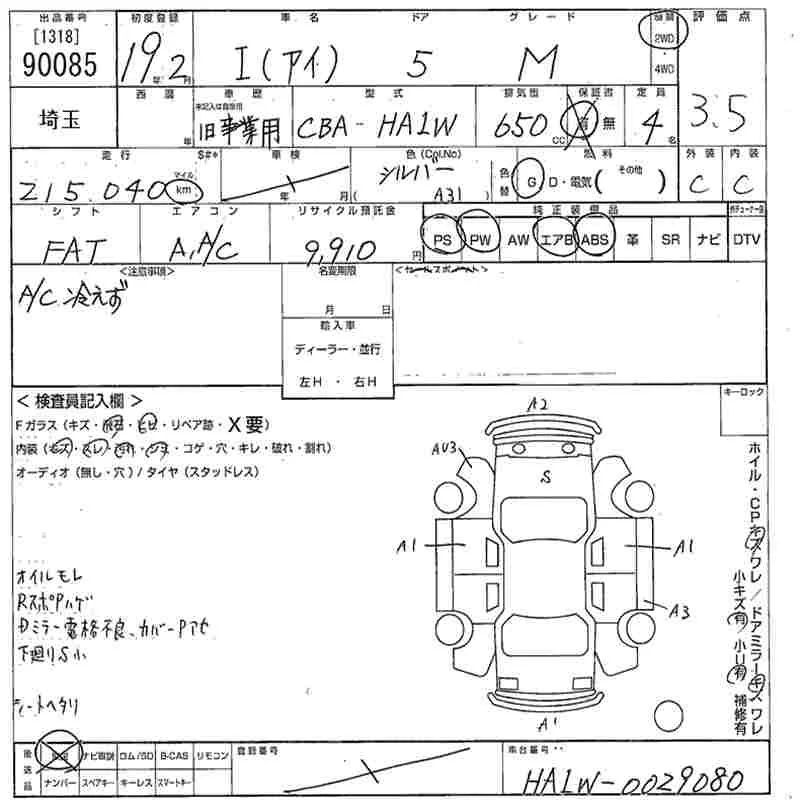 出品番号 初度登録 車名 ドア グレード 2WD 評価点
[1318] 90085 19年2月 I(アイ) 5 M 4WD 3.5
埼玉 西暦 年 車歴 未記入は自家用 旧事業用 型式 CBA-HA1W 排気量 650cc 保証書 有 無 定員 4名
走行 マイル 215.040 km S#* 車検 年 月 色(Col.No) シルバー (A31) 色替 燃料 G D・電気(その他) 外装 C 内装 C
シフト エアコン リサイクル預託金 純正装備品
FAT A,A/C 9,910円 PS PW AW エアB ABS 革 SR ナビ DTV
<注意事項> 名変期限 <セールスポイント>
A/C 冷えず
月 日
輸入車
ディーラー・並行
左H ・ 右H
キーロック
<検査員記入欄>
Fガラス(キズ・飛石・ヒビ・リペア跡・X要)
内装(キズ・スレ・汚れ・シミ・コゲ・穴・キレ・破れ・割れ)
オーディオ(無し・穴)/タイヤ(スタッドレス)
A2
AU3
S
A1 A1
A3
A1
ホイル・CPキズワレ/ドアミラーキズワレ
小キズ有/小U有 補修有
オイルモレ
RスポPハゲ
Dミラー電格不良、カバーPアセ
下廻りS小
シートヘタリ
後送品 ナビ取説 ロム/SD B-CAS リモコン 登録番号 車台番号
ナンバー スペアキー キーレス スマートキー HA1W-0029080